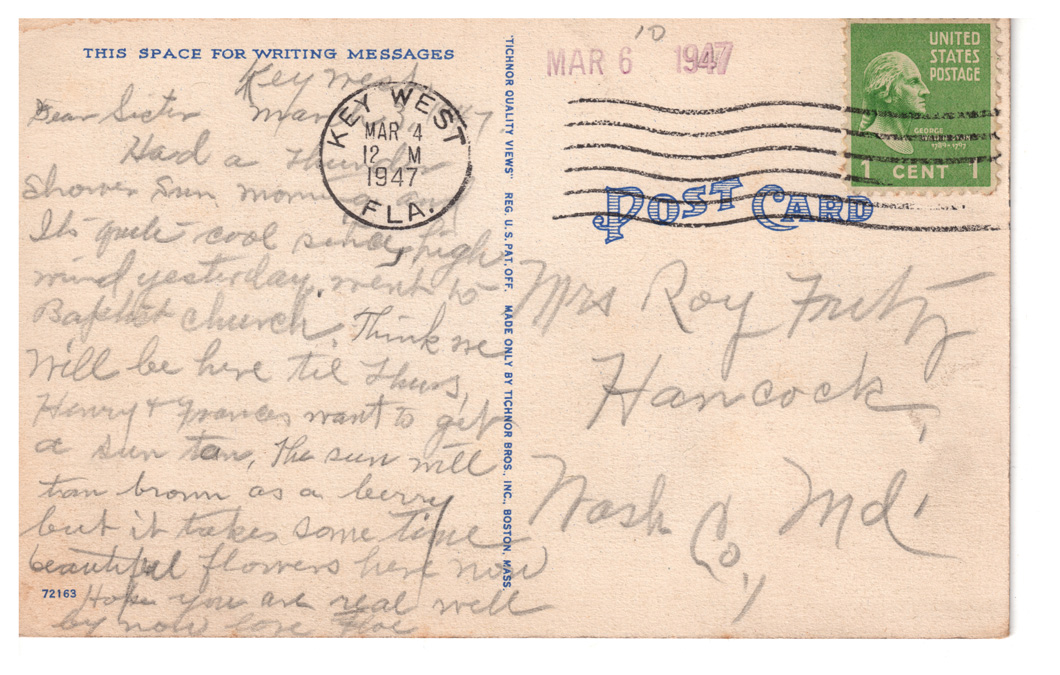 THIS SPACE FOR WRITING MESSAGES
Key West
Dear Sister Mar 3, 47.
Had a Thunder
Shower Sun morning and
Its quite cool since, high
wind yesterday, went to
Baptist church. Think we
will be here til Thurs,
Henry & Frances want to get
a sun tan, The sun will
tan brown as a berry
but it takes some time
beautiful flowers here now
Hope you are real well
by now love
72163
KEY WEST
MAR 4
12 M
1947
FLA.
"TICHNOR QUALITY VIEWS" REG. U.S. PAT. OFF. MADE ONLY BY TICHNOR BROS., INC., BOSTON, MASS.
10
MAR 6 1947
UNITED
STATES
POSTAGE
GEORGE
WASHINGTON
1789-1797
1 CENT 1
POST CARD
Mrs Roy Fritz
Hancock,
Wash Co., Md.